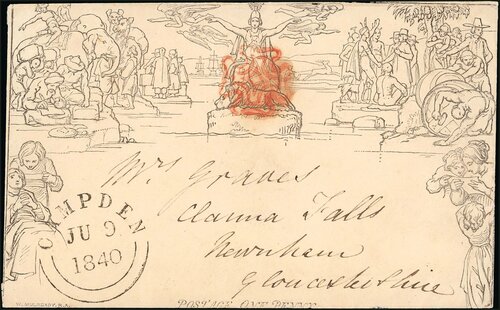 Mrs Graves
Clanna Falls
Newnham
Gloucestershire
CAMPDEN
JU 9
1840
W. MULREADY. R.A.
POSTAGE ONE PENNY